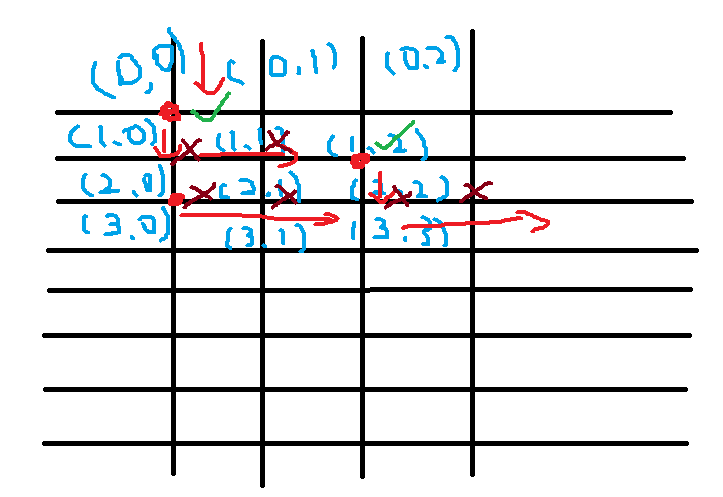 (0,0) (0,1) (0.2)
(1.0) (1,1) (1,2)
(2.0) (2,1) (2,2)
(3.0) (3,1) (3.3)